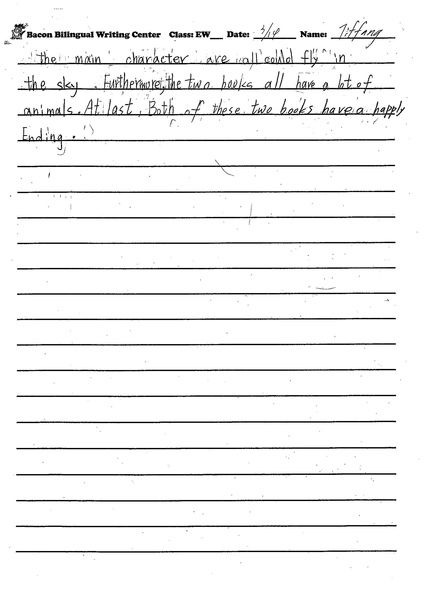 Bacon Bilingual Writing Center Class: EW__ Date: 3/14 Name: Tiffany
the main character are all could fly in
the sky. Furthermore, the two books all have a lot of
animals. At last, Both of these two books have a happly
Ending.